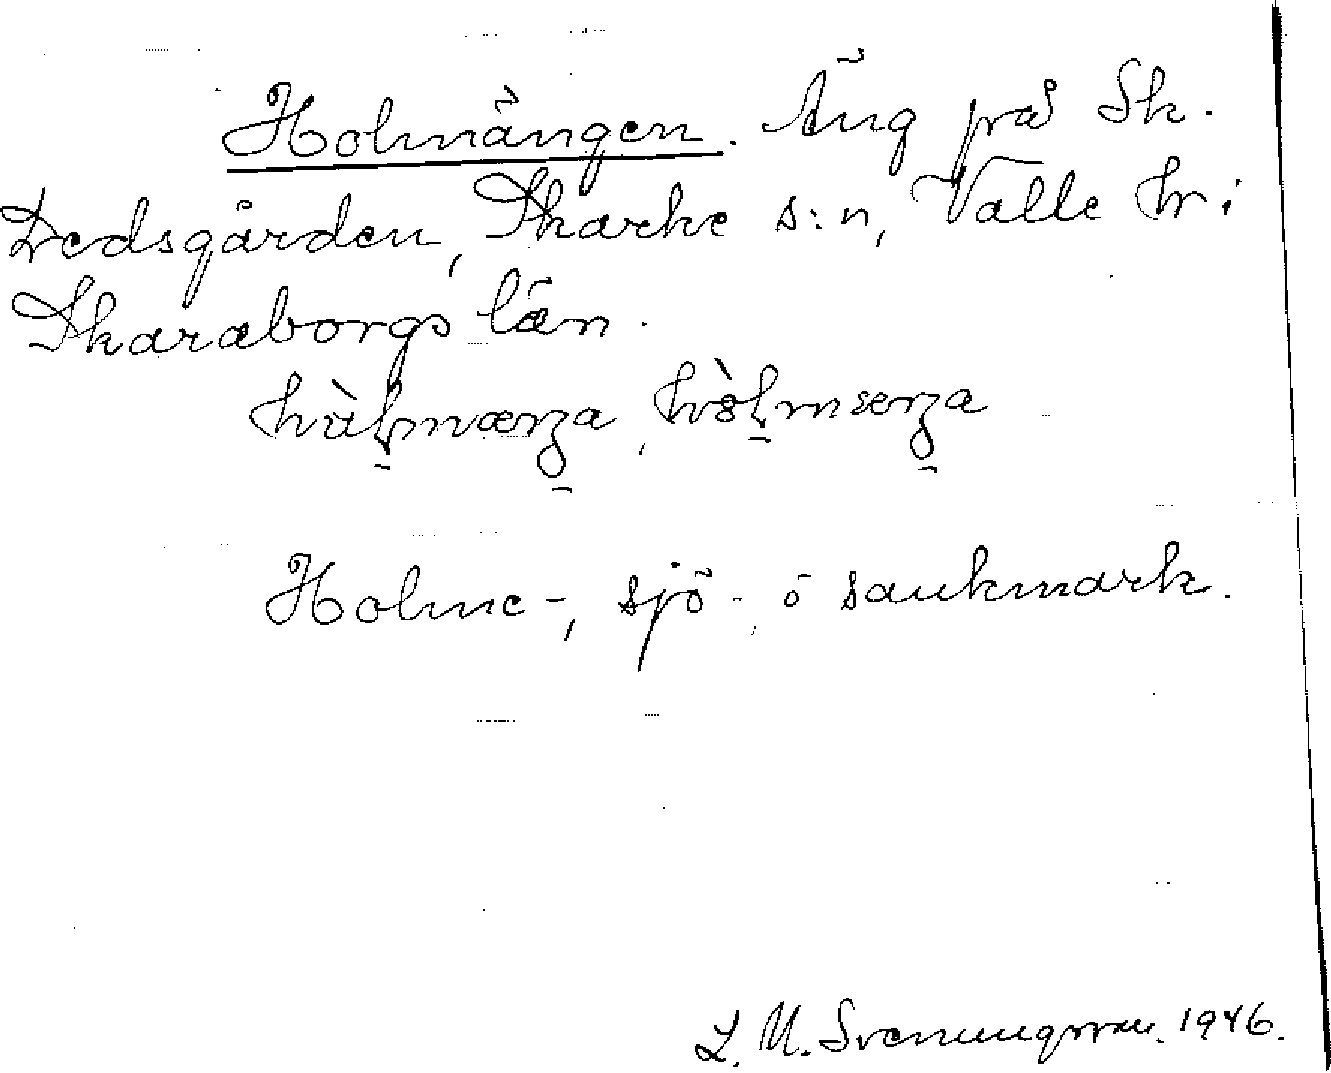 Holmängen. Äng på Sk.
Dedsgården, Skarke s:n, Valle hr i
Skaraborgs län.
Holme-, sjö-, o sankmark.
L. M. Svenungsson. 1946.